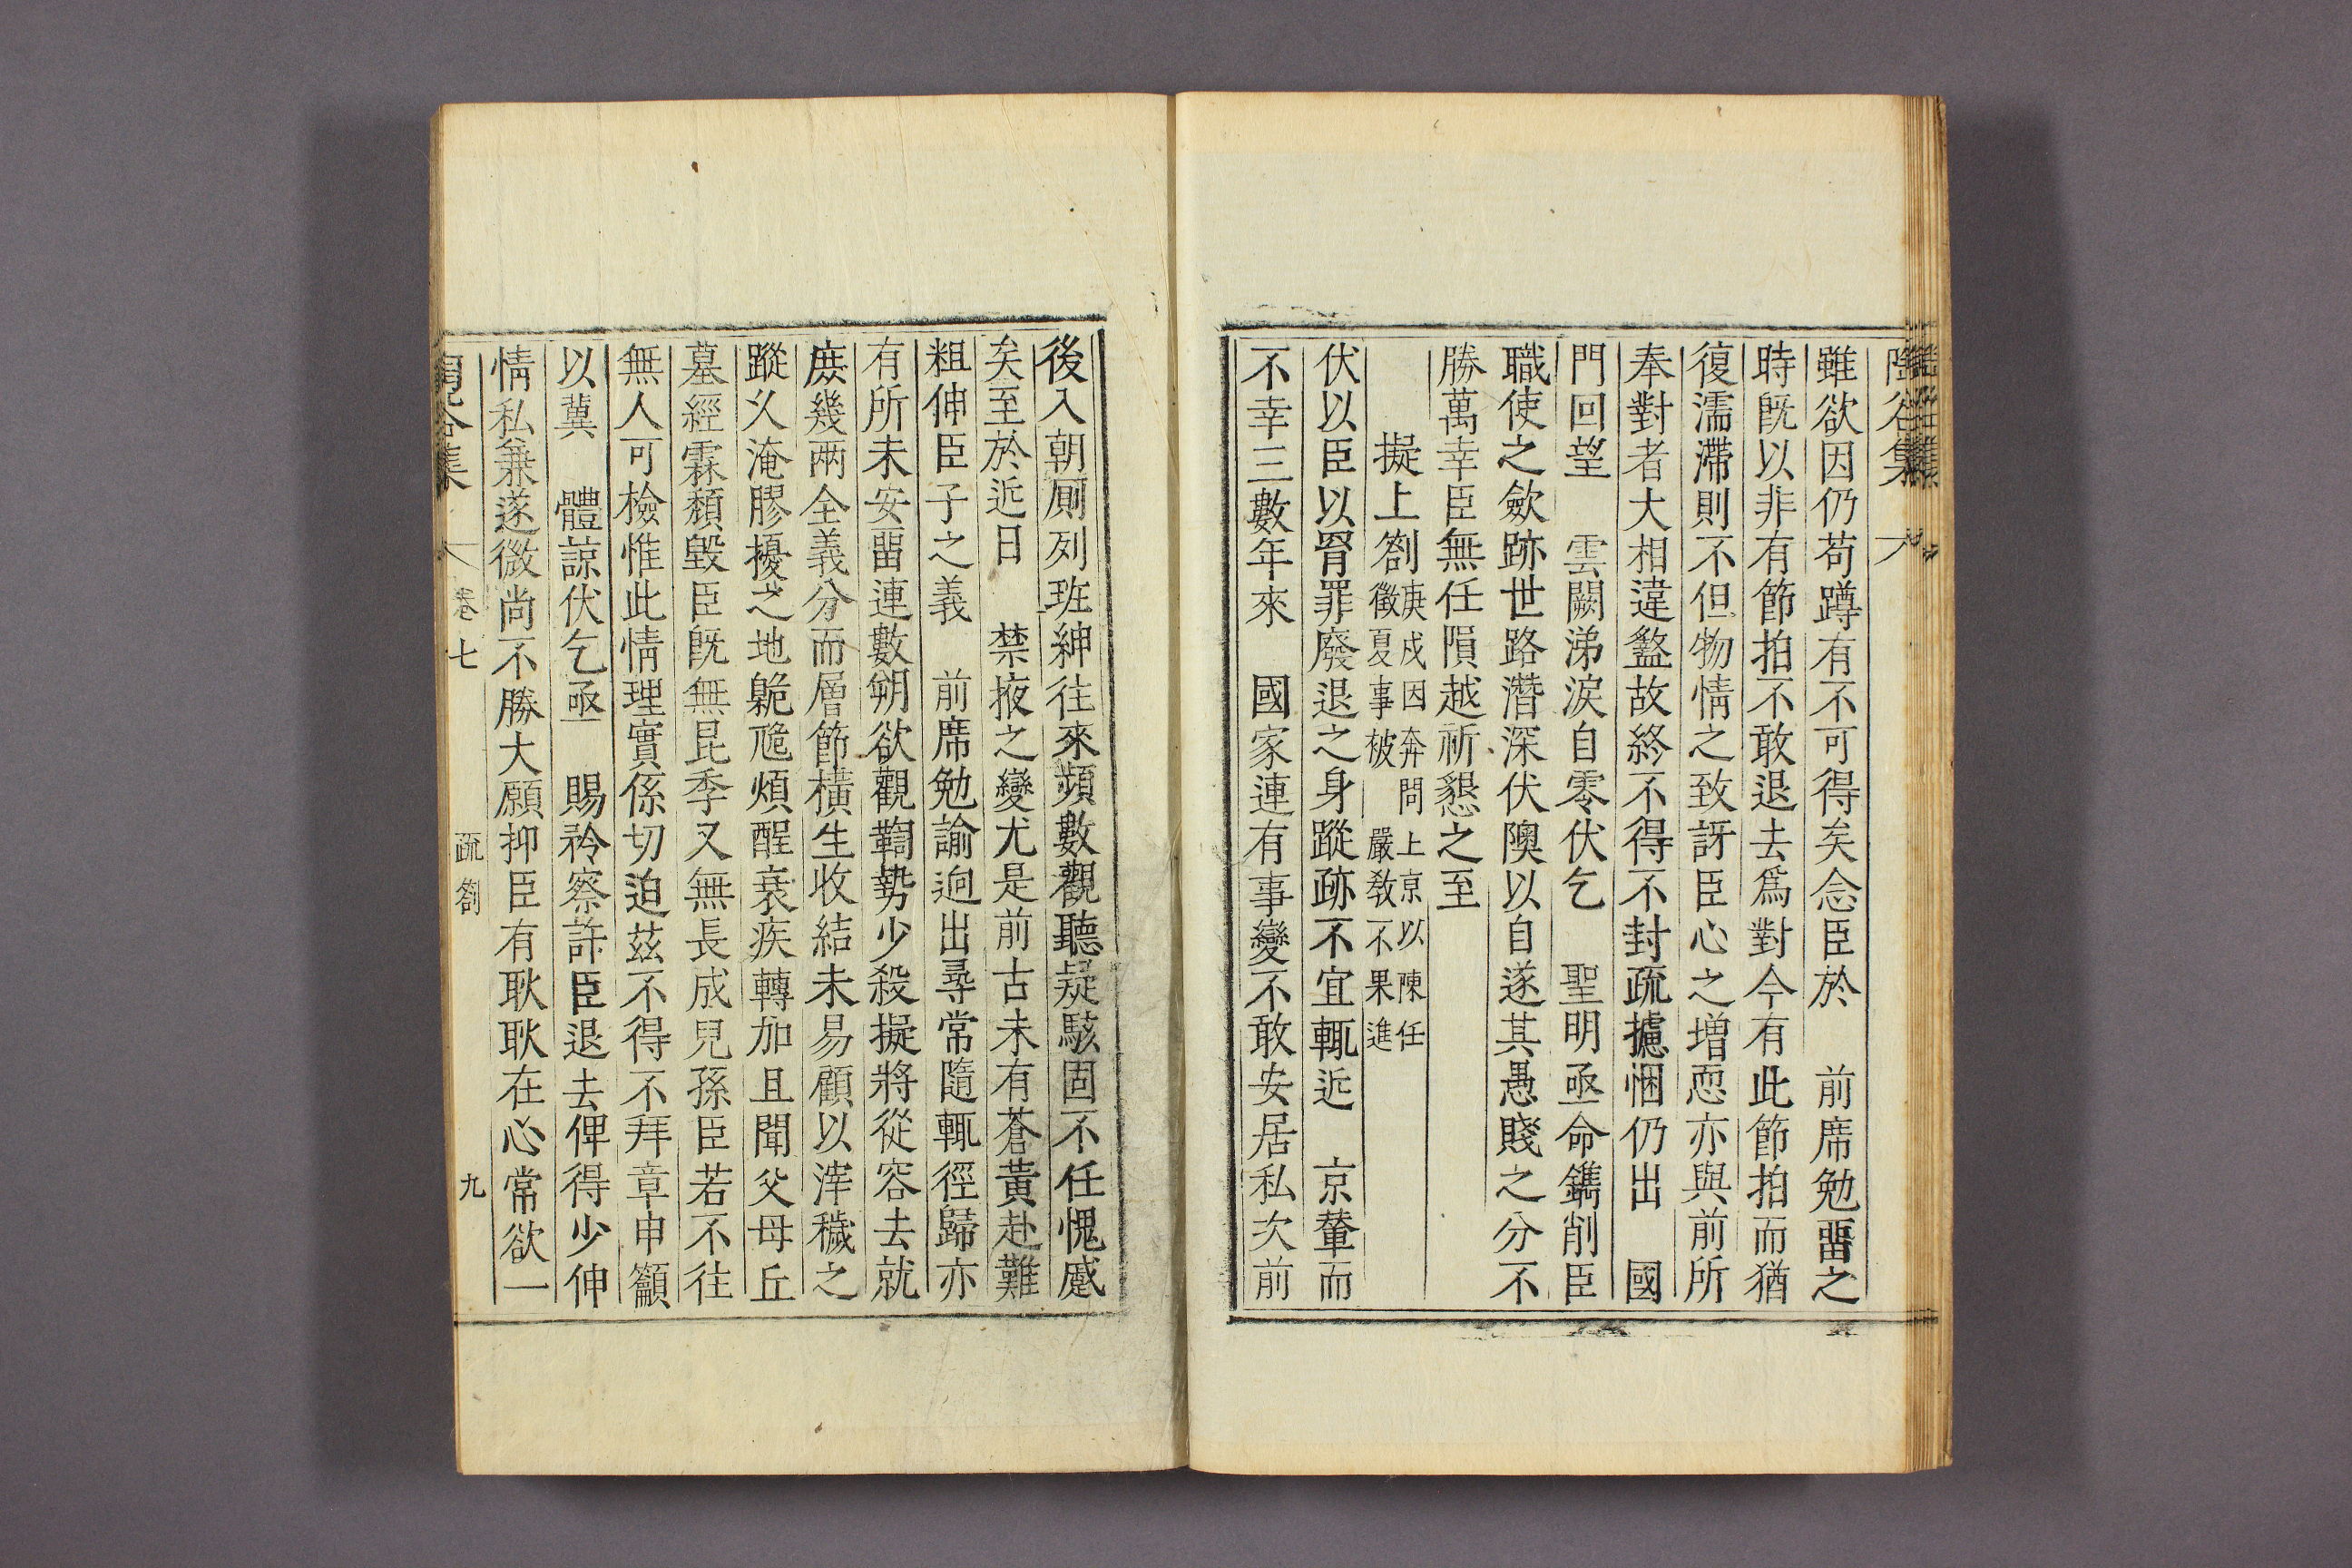 谷集
雖欲因仍苟蹲有不可得矣念臣於　前席勉畱之
時旣以非有節拍不敢退去爲對今有此節拍而猶
復濡滯則不但物情之致訝臣心之增恧亦與前所
奉對者大相違盭故終不得不封疏攄悃仍出　國
門回望　雲闕涕淚自零伏乞　聖明亟命鐫削臣
職使之斂跡世路潛深伏隩以自遂其愚賤之分不
勝萬幸臣無任隕越祈懇之至
擬上劄庚戌因奔問　上京以陳任
徵夏事被　嚴敎不果進
伏以臣以胥罪廢退之身蹤跡不宜輒近　京輦而
不幸三數年來　國家連有事變不敢安居私次前
後入朝厠列班紳往來頻數觀聽疑駭固不任愧蹙
矣至於近日　禁掖之變尤是前古未有蒼黃赴難
粗伸臣子之義　前席勉諭逈出尋常隨輒徑歸亦
有所未安畱連數朔欲觀鞫勢少殺擬將從容去就
庶幾兩全義分而層節橫生收結未易顧以滓穢之
蹤久淹膠擾之地臲卼煩酲衰疾轉加且聞父母丘
墓經霖頹毁臣旣無昆季又無長成兒孫臣若不往
無人可檢惟此情理實係切迫茲不得不拜章申籲
以冀　體諒伏乞亟　賜矜察許臣退去俾得少伸
情私兼遂微尙不勝大願抑臣有耿耿在心常欲一
谷集
卷七　疏劄　九